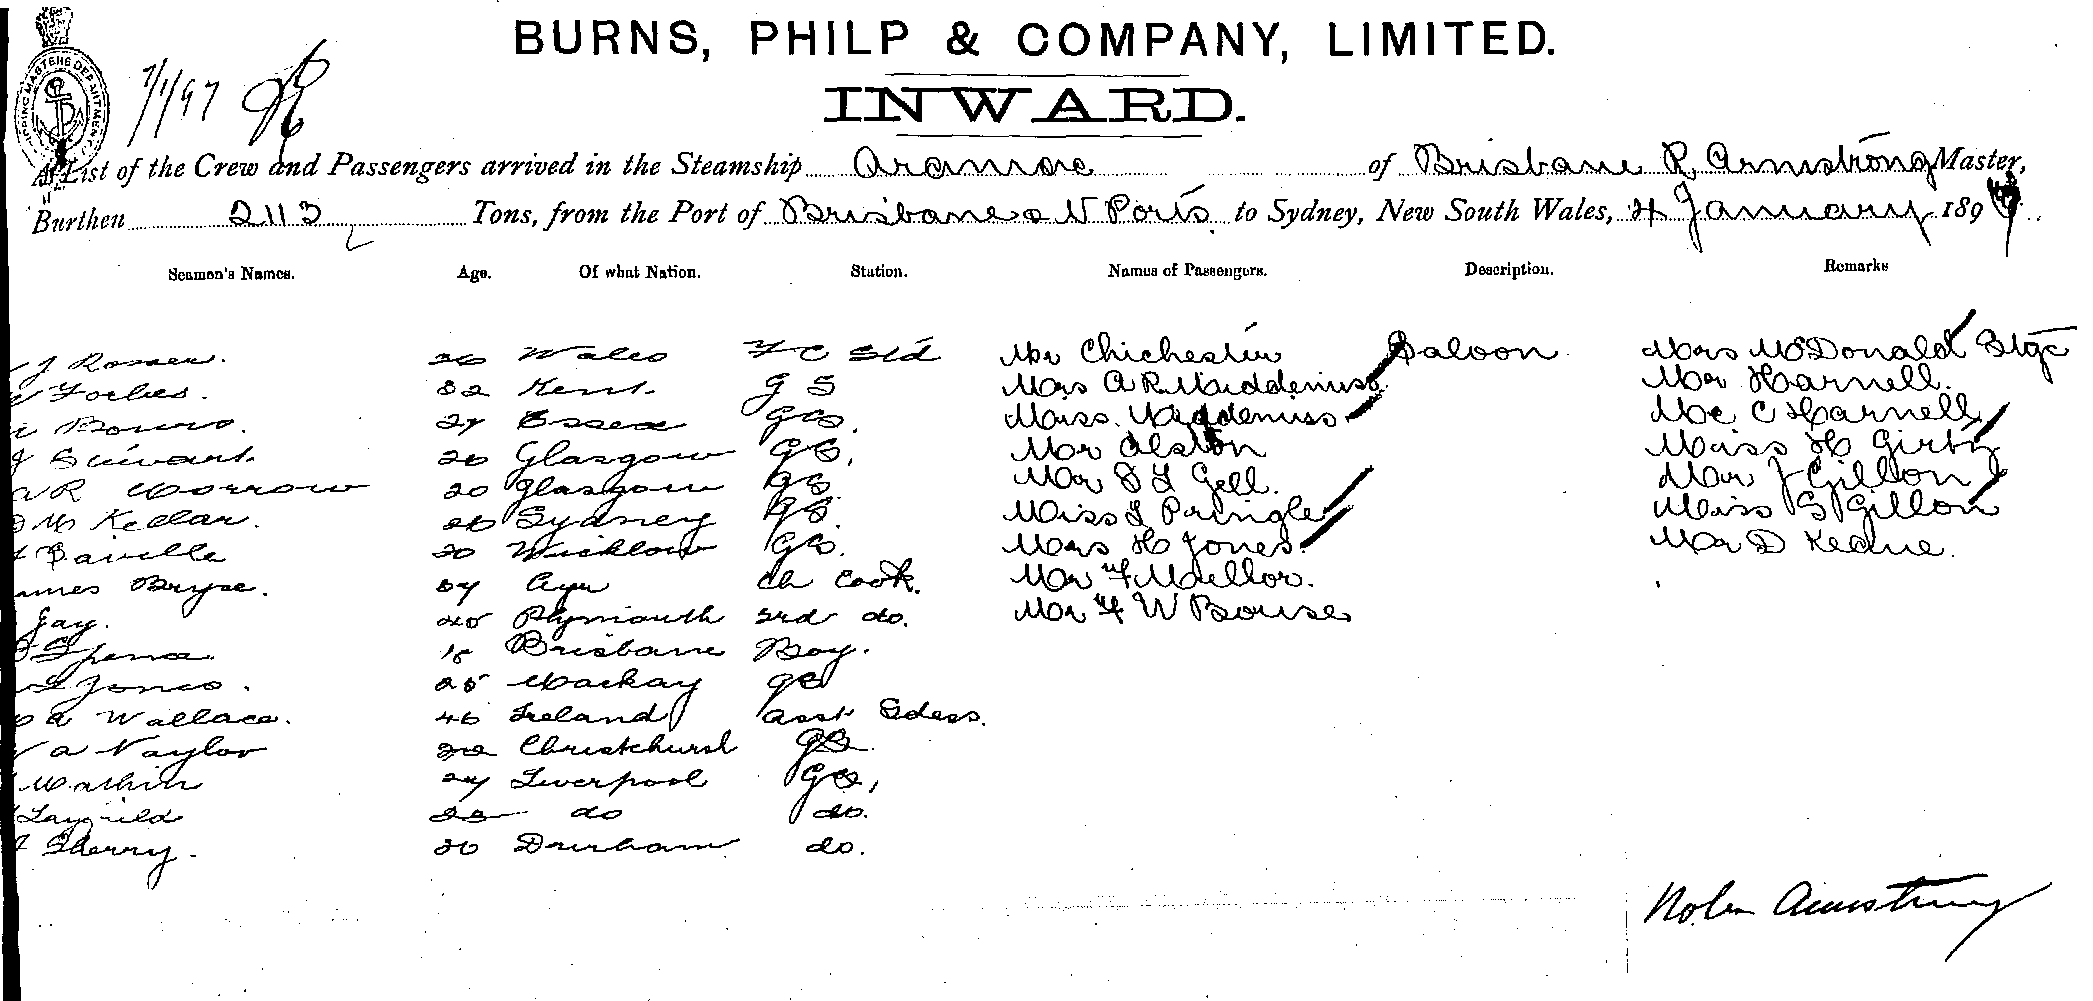 BURNS, PHILP & COMPANY, LIMITED.
INWARD.
7/1/97
A List of the Crew and Passengers arrived in the Steamship Aramac of Brisbane R Armstrong Master,
Burthen 2113 Tons, from the Port of Brisbane & N Ports to Sydney, New South Wales, 4 January 189
Seamen's Names. Age. Of what Nation. Station. Names of Passengers. Description. Remarks
J Rosser. 26 Wales F C Std Mr Chichester Saloon Mrs McDonald Stge
Forbes. 32 Kent. G S Mrs A R Middenuss Mr Harnell.
27 Essex GS. Miss Middenuss Mr C Harnell
Stewart. 26 Glasgow GS. Mr Alston Miss H
A R Morrow 20 Glasgow GS. Mr S L Gell. Mr J Gillon
McKellar. 26 Sydney GS. Miss L Pringle Miss S Gillon
Saville 20 Wicklow GS. Mrs H Jones. Mr D Keane.
Bryce. Ayr Ch Cook. Mr F Mellor.
Jay. 25 Plymouth 3rd do. Mr F W Bourse
Spence 18 Brisbane Boy.
Jones. 25 Mackay GS
A Wallace. 46 Ireland Asst Stdess.
A Naylor 22 Christchurch GS.
24 Liverpool GS,
do do.
Sherry. Durham do.
Armstrong